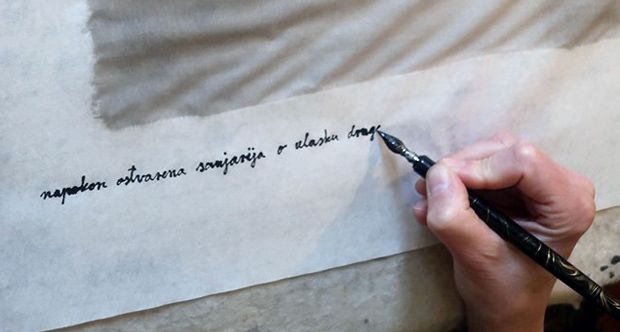 napokon ostvarena sanjarija o ulasku drage